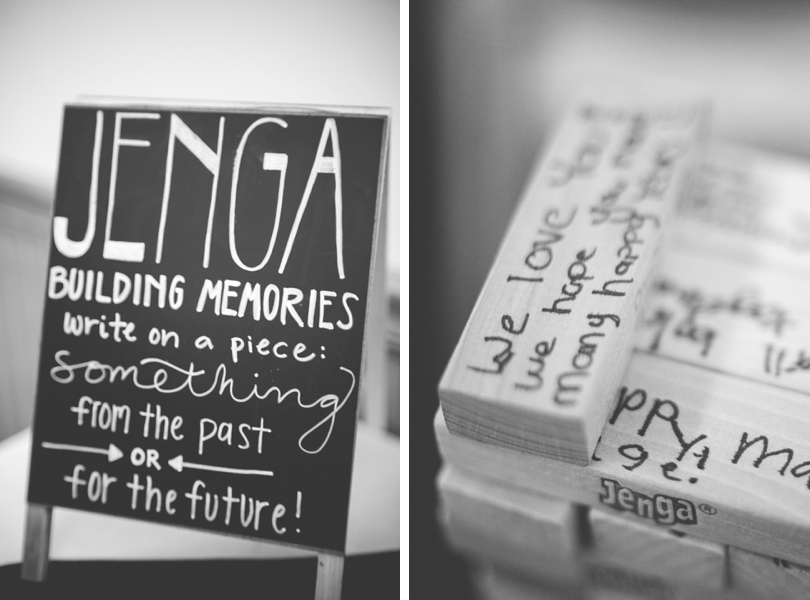 JENGA
BUILDING MEMORIES
write on a piece:
something
from the past
OR
for the future!
We love you
we hope you
many happy
ppy, ma
ge!
Jenga®